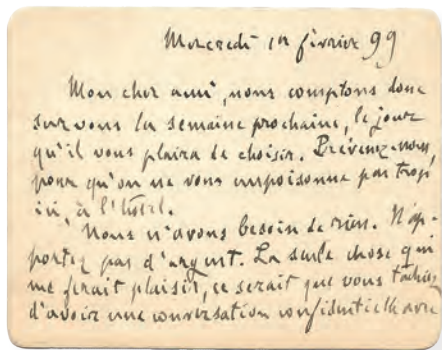 Mercredi 1er février 99
Mon cher ami, nous comptons donc
sur vous la semaine prochaine, le jour
qu'il vous plaira de choisir. Prévenez-nous,
pour qu'on ne vous empoisonne pas trop
ici, à l'hôtel.
Nous n'avons besoin de rien. N'ap-
portez pas d'argent. La seule chose qui
me ferait plaisir, ce serait que vous tâchiez
d'avoir une conversation confidentielle avec